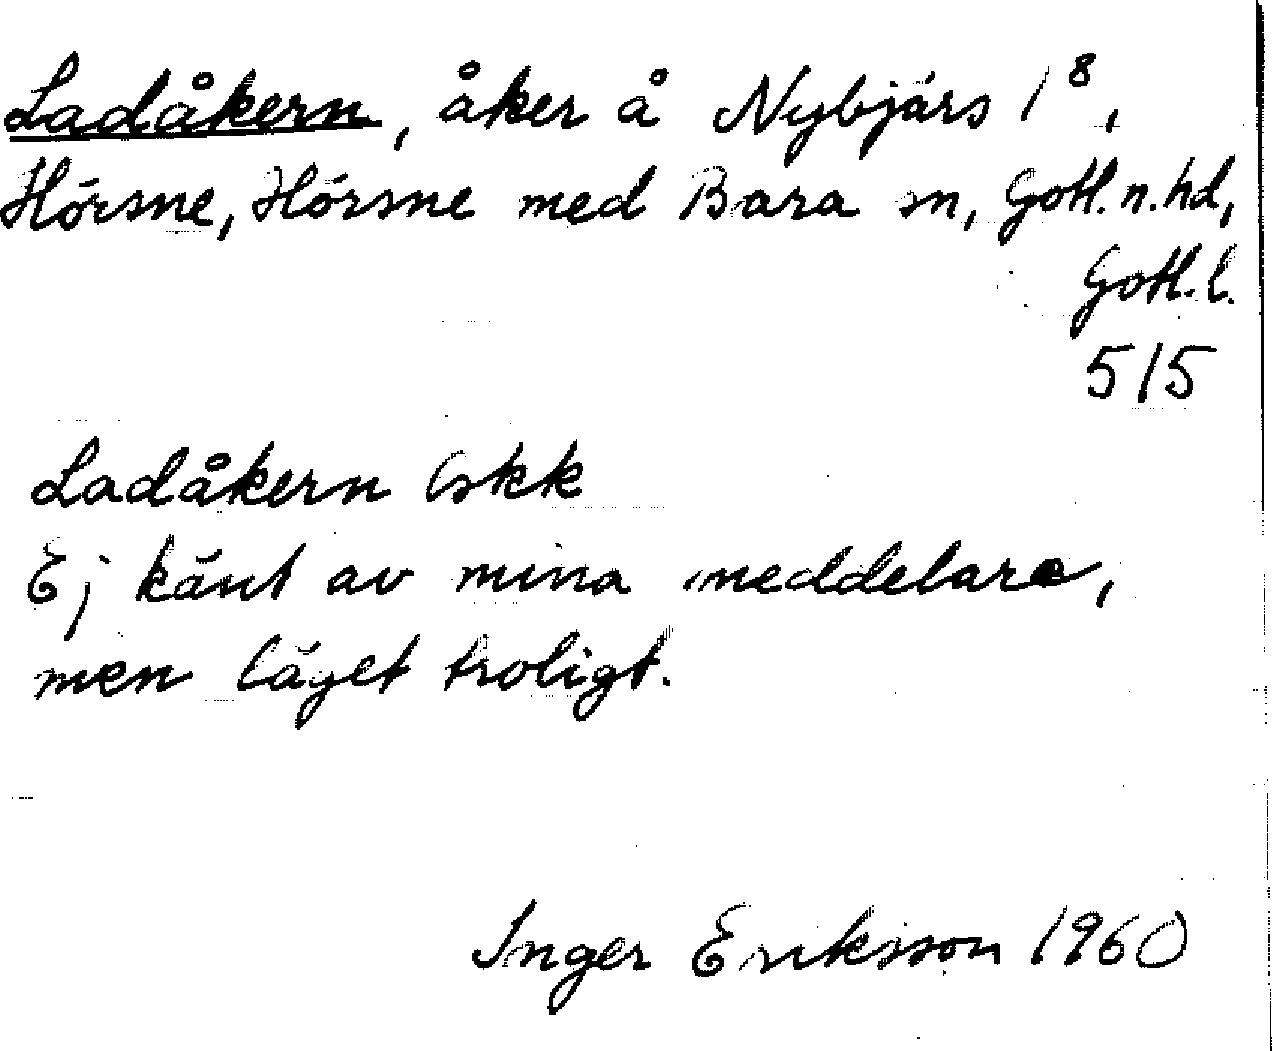 Ladåkern, åker å Nybjärs 1⁸,
Hörsne, Hörsne med Bara sn, Gotl. n. hd,
Gotl. l.
515
Ladåkern Eskk
Ej känt av mina meddelare,
men läget troligt.
Inger Eriksson 1960